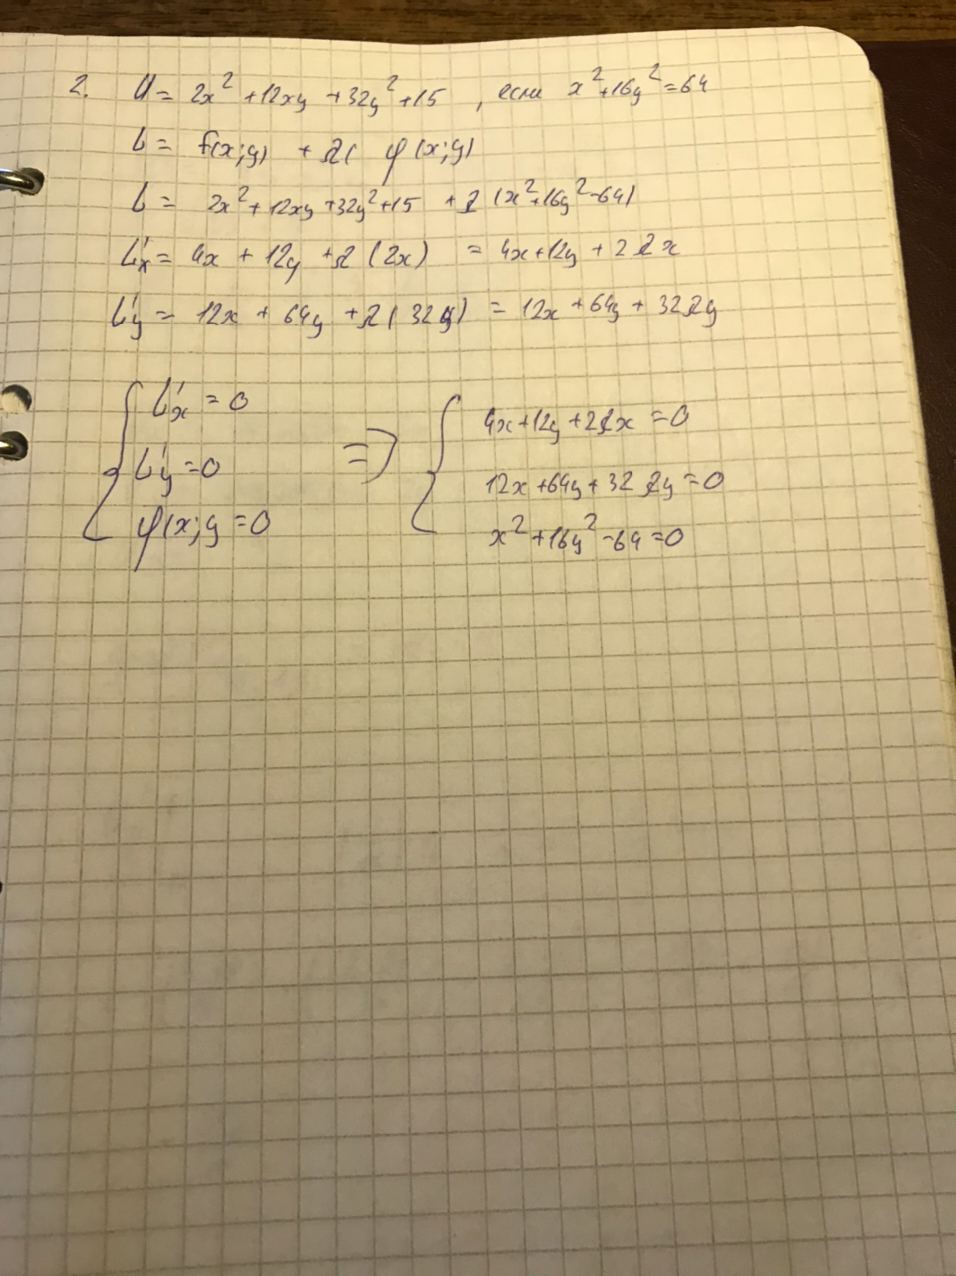 2. U = 2x² + 12xy + 32y² + 15 , если x² + 16y² = 64
L = f(x;y) + λ( φ(x;y)
L = 2x² + 12xy + 32y² + 15 + λ (x² + 16y² - 64)
L'x = 4x + 12y + λ (2x) = 4x + 12y + 2λx
L'y = 12x + 64y + λ( 32y) = 12x + 64y + 32λy
{ L'x = 0 => { 4x + 12y + 2λx = 0
L'y = 0 12x + 64y + 32λy = 0
φ(x;y = 0 x² + 16y² - 64 = 0